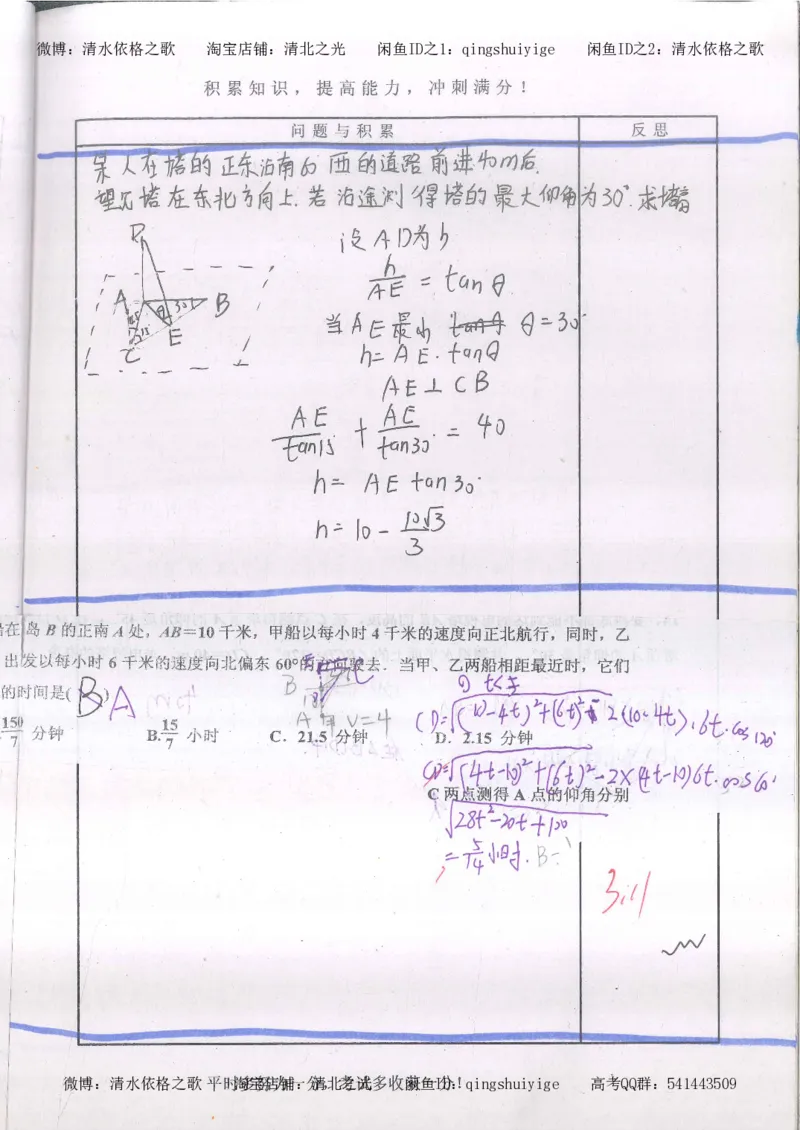 微博：清水依格之歌 淘宝店铺：清北之光 闲鱼ID之1：qingshuiyige 闲鱼ID之2：清水依格之歌
积累知识，提高能力，冲刺满分！
问题与积累 反思
某人在塔的正东沿南60西的道路前进40m后,
望见塔在东北方向上.若沿途测得塔的最大仰角为30°.求塔高
设AD为h
D
A 30° B
E
C
h/AE = tanθ
当AE最小 tanθ θ=30°
h=AE·tanθ
AE⊥CB
AE/tan15° + AE/tan30° = 40
h= AE tan30°
h= 10 - 10√3/3
在岛 B 的正南 A 处，AB=10 千米，甲船以每小时 4 千米的速度向正北航行，同时，乙
出发以每小时 6 千米的速度向北偏东 60°的方向驶去．当甲、乙两船相距最近时，它们
的时间是( B ) A
B C
A 甲 V=4
150/7 分钟 B. 15/7 小时 C. 21.5 分钟 D. 2.15 分钟
CD=√(10-4t)²+(6t)²-2(10-4t)·6t·cos120°
CD=√(4t-10)²+(6t)²-2×(4t-10)6t·cos60°
C 两点测得 A 点的仰角分别
√28t²-20t+100
=5/14小时.
微博：清水依格之歌 闲鱼ID：qingshuiyige 高考QQ群：541443509